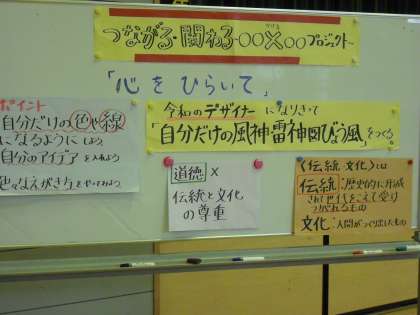 つながる・関わる・○○×○○プロジェクト
「心をひらいて」
ポイント
自分だけの色や線
になるようにしよう
自分のアイデアを入れよう
色々なえがき方をやってみよう
令和のデザイナーになりきって
「自分だけの風神雷神図びょう風」をつくる。
道徳×
伝統と文化
の尊重
〈伝統文化〉とは
伝統:歴史的に形成
され世代をこえて受け
つがれるもの
文化:人間がつくり出したもの